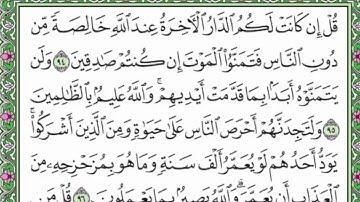 قُلْ إِن كَانَتْ لَكُمُ ٱلدَّارُ ٱلْأَخِرَةُ عِندَ ٱللَّهِ خَالِصَةً مِّن
دُونِ ٱلنَّاسِ فَتَمَنَّوُا۟ ٱلْمَوْتَ إِن كُنتُمْ صَٰدِقِينَ ٩٤ وَلَن
يَتَمَنَّوْهُ أَبَدًۢا بِمَا قَدَّمَتْ أَيْدِيهِمْ ۗ وَٱللَّهُ عَلِيمٌۢ بِٱلظَّٰلِمِينَ
٩٥ وَلَتَجِدَنَّهُمْ أَحْرَصَ ٱلنَّاسِ عَلَىٰ حَيَوٰةٍ وَمِنَ ٱلَّذِينَ أَشْرَكُوا۟ ۚ
يَوَدُّ أَحَدُهُمْ لَوْ يُعَمَّرُ أَلْفَ سَنَةٍ وَمَا هُوَ بِمُزَحْزِحِهِۦ مِنَ
ٱلْعَذَابِ أَن يُعَمَّرَ ۗ وَٱللَّهُ بَصِيرٌۢ بِمَا يَعْمَلُونَ ٩٦ قُلْ مَن